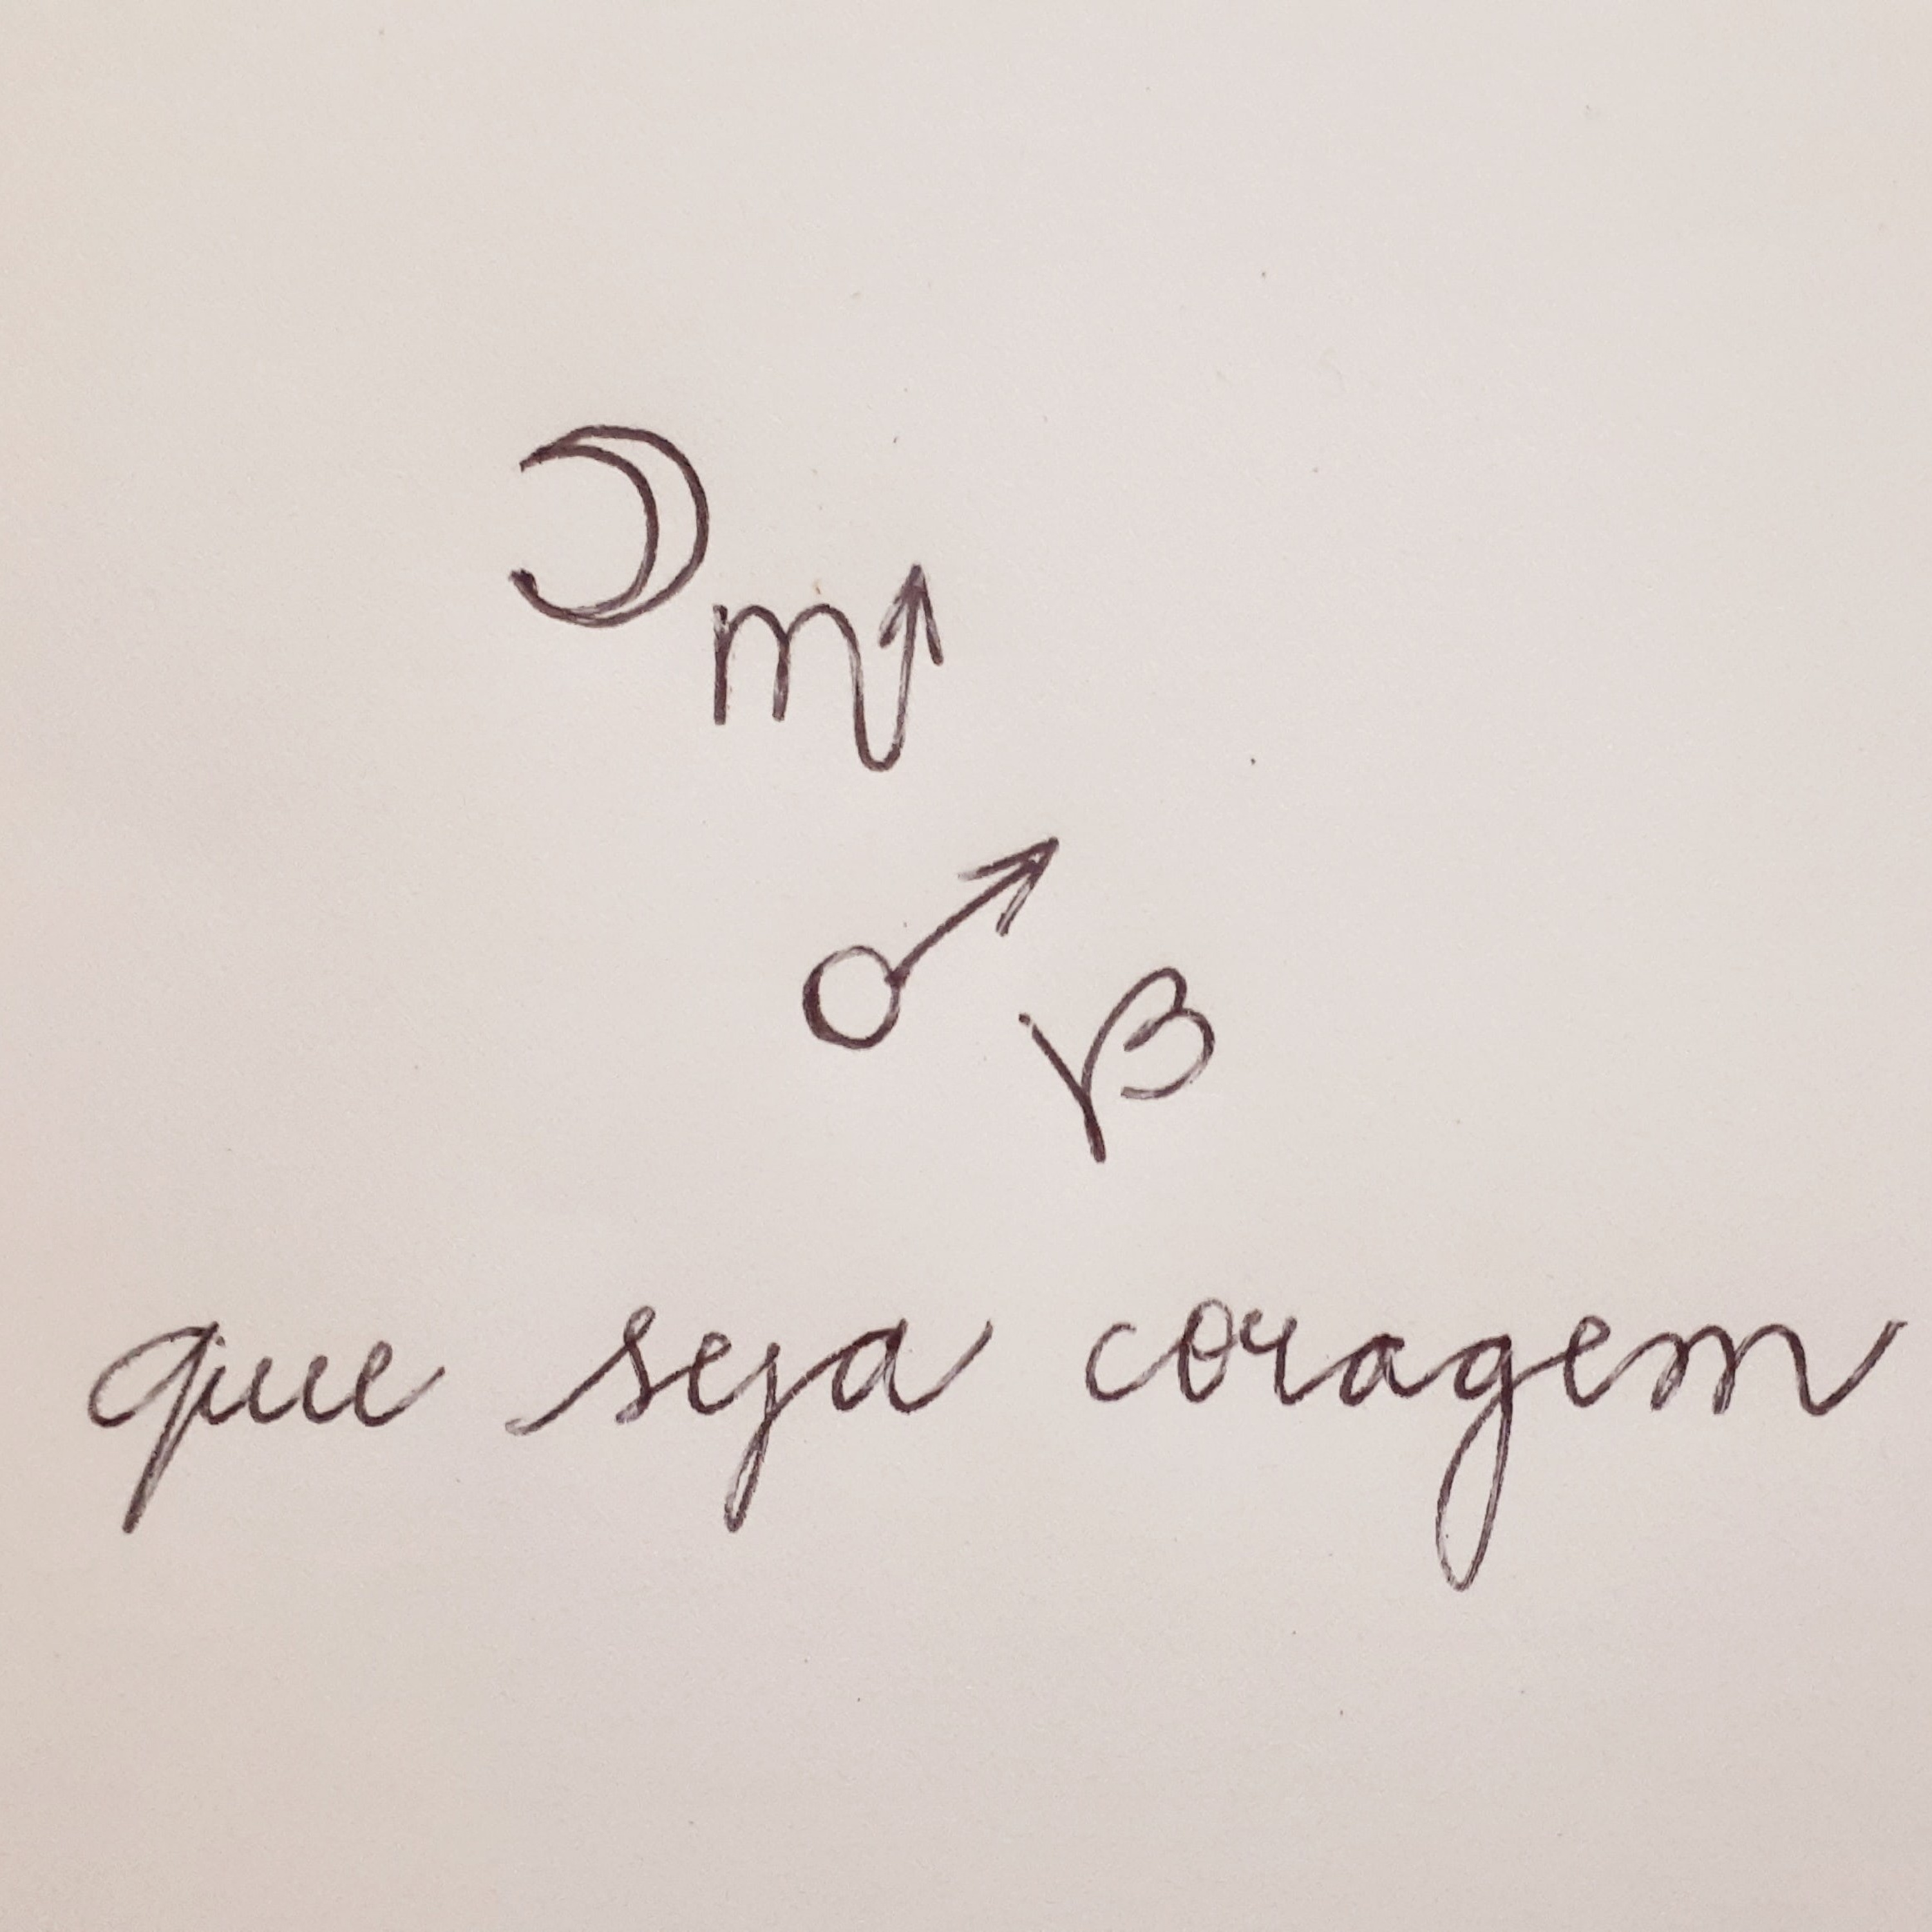 que seja coragem